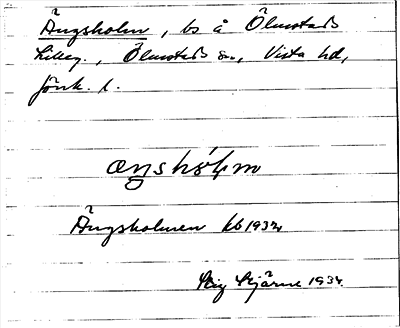 Ängsholm, bs å Ölmstads
Lilleg., Ölmstads sn., Vista hd,
Jönk. l.
Ängsholmen kb 1932
Stig Stjärne 1934